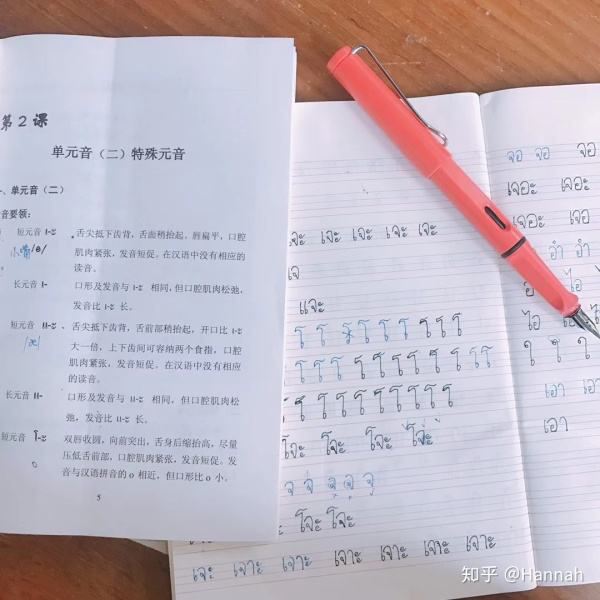 第 2 课
单元音（二）特殊元音
、单元音（二）
音要领：
短元音 เ-ะ 、舌尖抵下齿背，舌面稍抬起。唇扁平，口腔
小嘴/e/ 肌肉紧张，发音短促。在汉语中没有相应的
读音。
长元音 เ- 口形及发音与 เ-ะ 相同，但口腔肌肉松弛，
发音比 เ-ะ 长。
短元音 แ-ะ 、舌尖抵下齿背，舌前部稍抬起，开口比 เ-ะ
大一倍，上下齿间可容纳两个食指，口腔
肌肉紧张，发音短促。在汉语中没有相应
的读音。
长元音 แ- 口形及发音与 แ-ะ 相同，但口腔肌肉松
弛，发音比 แ-ะ 长。
短元音 โ-ะ 双唇收圆，向前突出，舌身后缩抬高，尽量
压低舌前部，口腔肌肉紧张，发音短促。发
音与汉语拼音的 o 相近，但口形比 o 小。
5
จะ เจะ เจะ เจะ เจะ
แจะ
โ โ โ โ โ โ โ โ
โ โ โ โ โ โ โ โ โ
โ โ โ โ โ โ โ โ
โจะ โจะ โจะ โจ๊ะ
โจะ โจะ
จะ เจาะ เจาะ เจาะ เจาะ เจาะ เจาะ
จอ จอ จอ
เจอะ เจอะ
เจอะ เจอ
อำ อำ
ไอ
ไอ ไอ
ใ ใ ใ
เอา เอา
เอา
知乎 @Hannah